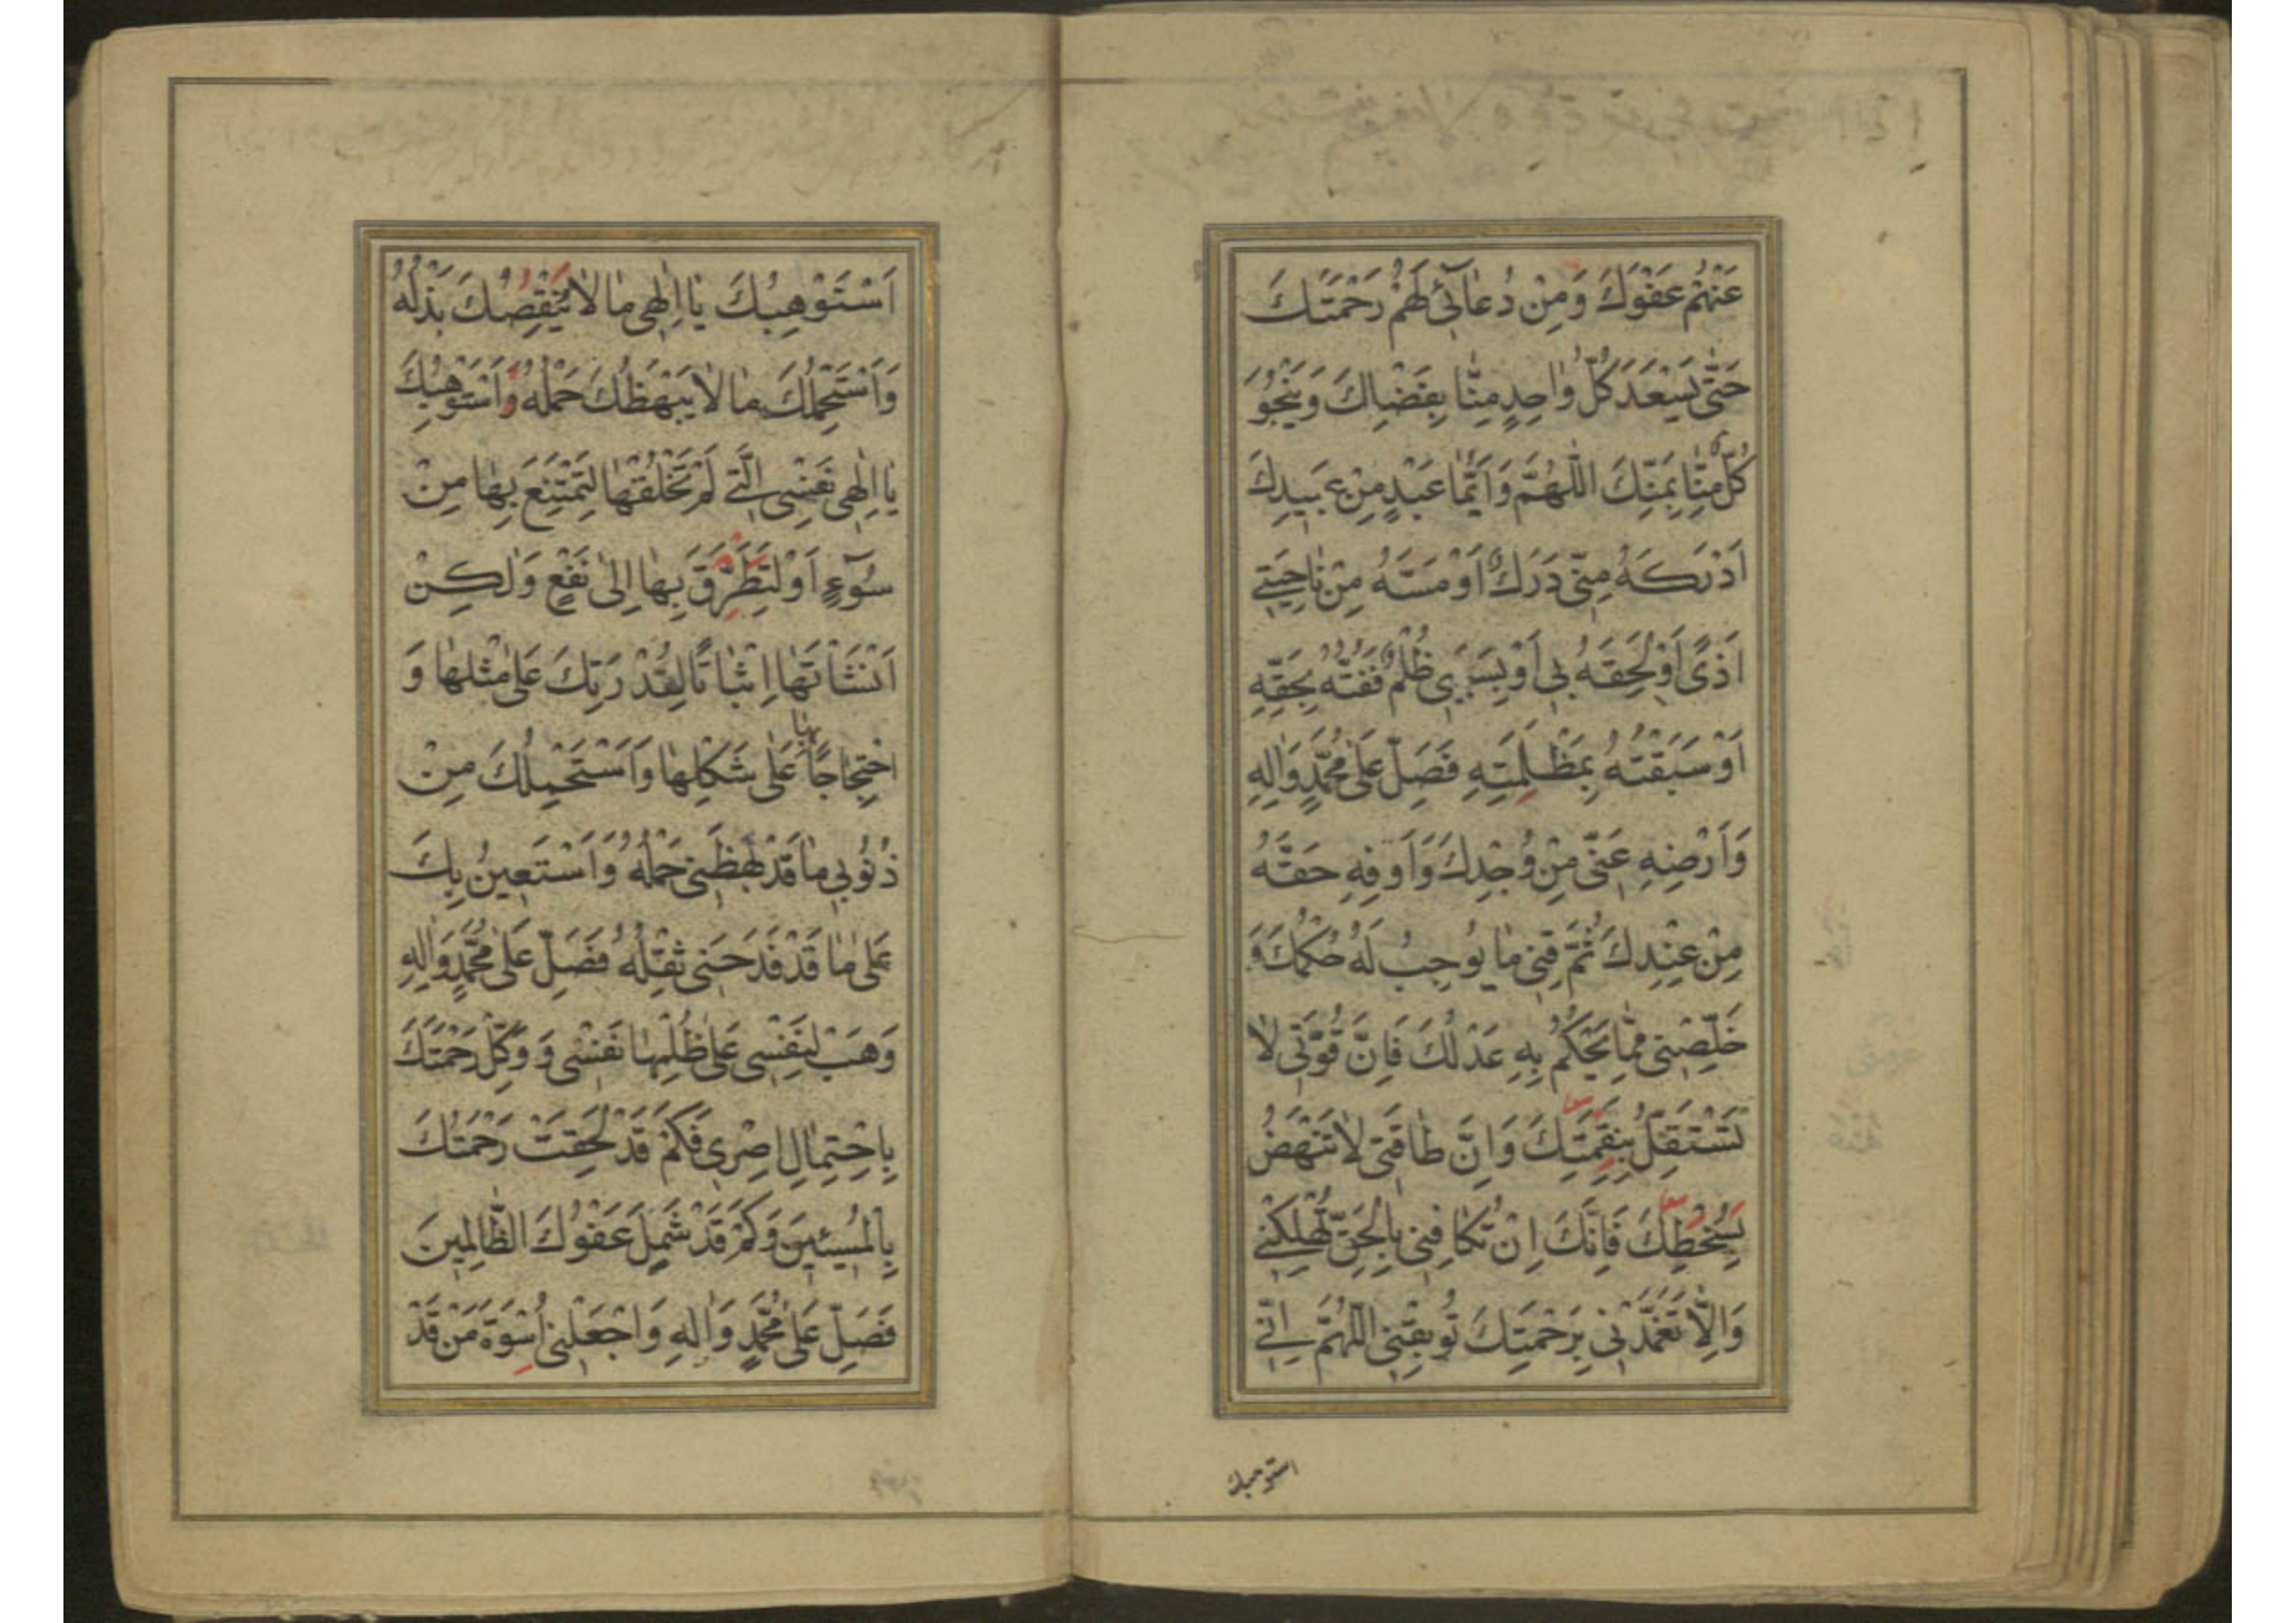 عَنْهُمْ عَفْوَكَ وَمِنْ دُعَائِي لَهُمْ رَحْمَتَكَ
حَتّٰى يَسْعَدَ كُلُّ وَاحِدٍ مِنَّا بِفَضْلِكَ وَيَنْجُوَ
كُلٌّ مِنَّا بِمَنِّكَ اللّٰهُمَّ وَاَيُّمَا عَبْدٍ مِنْ عَبِيدِكَ
اَدْرَكَهُ مِنّي دَرَكٌ اَوْ مَسَّهُ مِنْ نَاحِيَتي
اَذًى اَوْ لَحِقَهُ بي اَوْ بِسَبَبي ظُلْمٌ فَفُتُّهُ بِحَقِّهِ
اَوْ سَبَقْتُهُ بِمَظْلِمَتِهِ فَصَلِّ عَلٰى مُحَمَّدٍ وَاٰلِهِ
وَاَرْضِهِ عَنّي مِنْ وُجْدِكَ وَاَوْفِهِ حَقَّهُ
مِنْ عِنْدِكَ ثُمَّ قِني مَا يُوجِبُ لَهُ حُكْمُكَ وَ
خَلِّصْني مِمَّا يَحْكُمُ بِهِ عَدْلُكَ فَاِنَّ قُوَّتي لَا
تَسْتَقِلُّ بِنِقْمَتِكَ وَاِنَّ طَاقَتي لَا تَنْهَضُ
بِسُخْطِكَ فَاِنَّكَ اِنْ تُكَافِني بِالْحَقِّ تُهْلِكْني
وَاِلَّا تَغَمَّدْني بِرَحْمَتِكَ تُوبِقْني اللّٰهُمَّ اِنّي
استوهبك
اَسْتَوْهِبُكَ يَا اِلٰهي مَا لَا يَنْقُصُكَ بَذْلُهُ
وَاَسْتَحْمِلُكَ مَا لَا يَبْهَظُكَ حَمْلُهُ وَاَسْتَوْهِبُكَ
يَا اِلٰهي نَفْسِيَ الَّتي لَمْ تَخْلُقْهَا لِتَمْتَنِعَ بِهَا مِنْ
سُوٓءٍ اَوْ لِتَطَرَّقَ بِهَا اِلٰى نَفْعٍ وَلٰكِنْ
اَنْشَأْتَهَا اِثْبَاتًا لِقُدْرَتِكَ عَلٰى مِثْلِهَا وَ
احْتِجَاجًا بها عَلٰى شَكْلِهَا وَاَسْتَحْمِلُكَ مِنْ
ذُنُوبي مَا قَدْ بَهَظَني حَمْلُهُ وَاَسْتَعِينُ بِكَ
عَلٰى مَا قَدْ فَدَحَني ثِقْلُهُ فَصَلِّ عَلٰى مُحَمَّدٍ وَاٰلِهِ
وَهَبْ لِنَفْسي عَلٰى ظُلْمِهَا نَفْسي وَ وَكِّلْ رَحْمَتَكَ
بِاحْتِمَالِ اِصْري فَكَمْ قَدْ لَحِقَتْ رَحْمَتُكَ
بِالْمُسيئينَ وَكَمْ قَدْ شَمِلَ عَفْوُكَ الظَّالِمينَ
فَصَلِّ عَلٰى مُحَمَّدٍ وَاٰلِهِ وَاجْعَلْني اُسْوَةَ مَنْ قَدْ